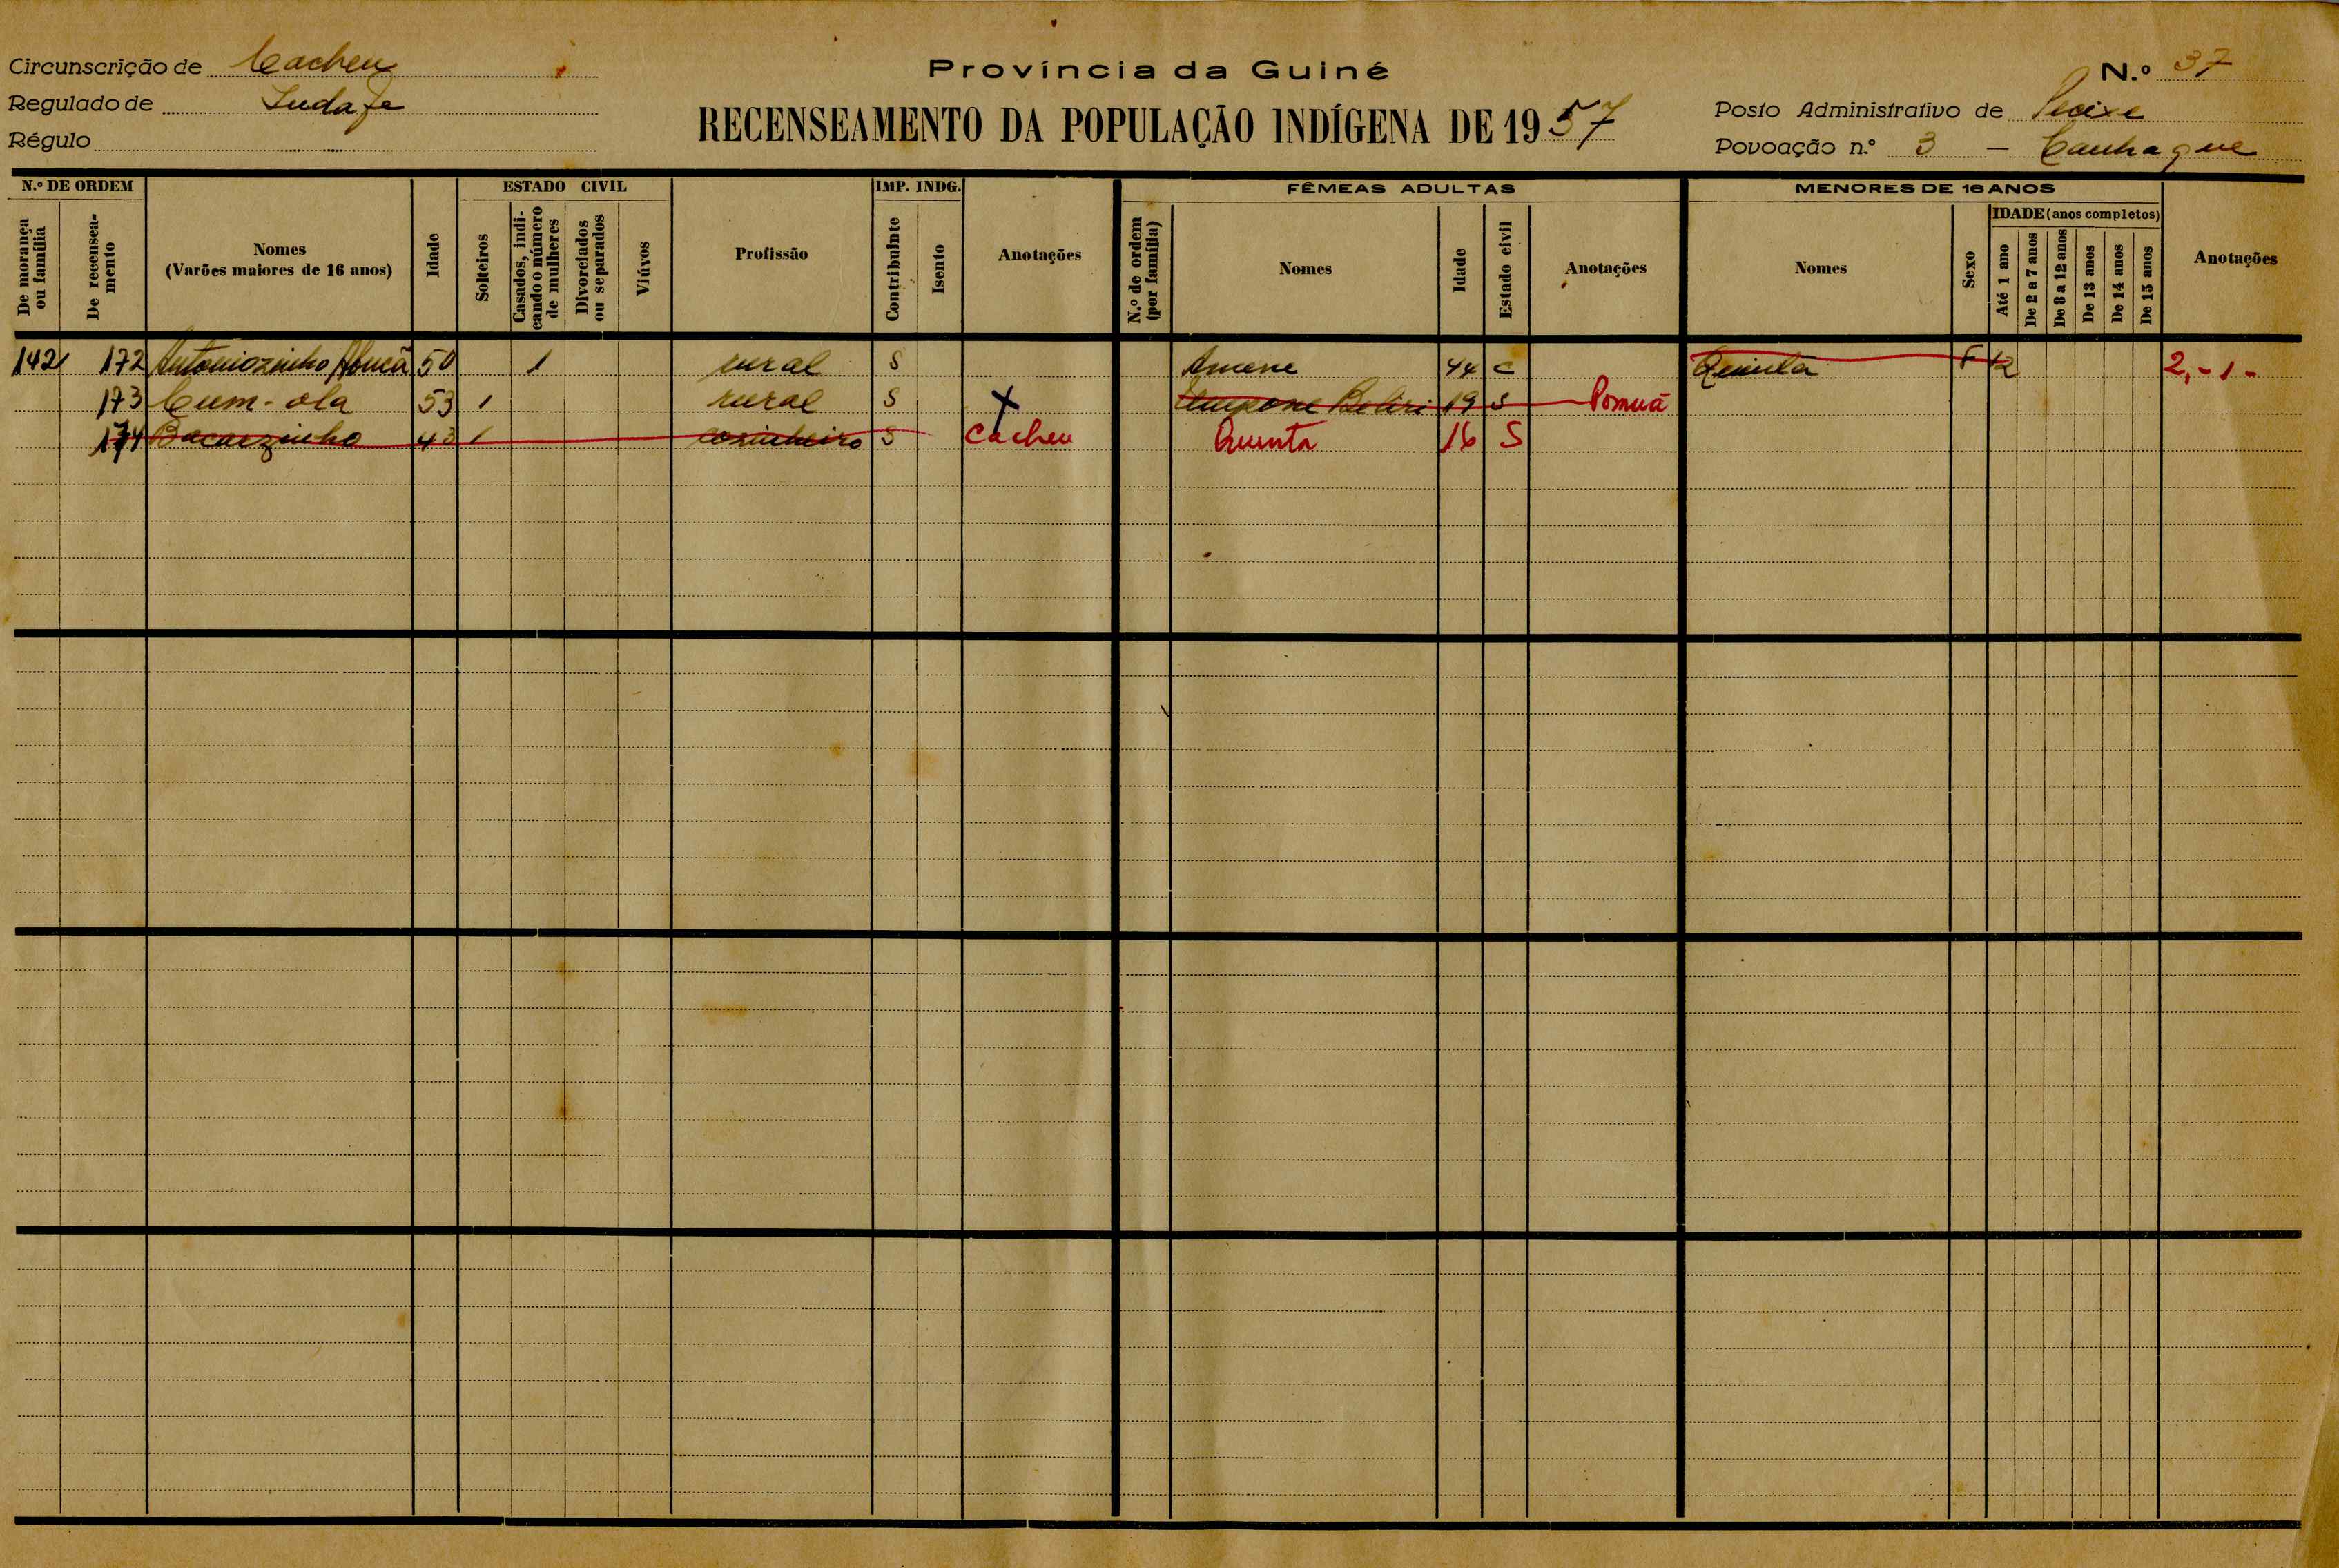 Circunscrição de Cacheu
Regulado de
Régulo
Província da Guiné
RECENSEAMENTO DA POPULAÇÃO INDÍGENA DE 1957
N.º 37
Posto Administrativo de Pecixe
Povoação n.º 3 - Canhaque
N.º DE ORDEM
De morança ou família
De recenseamento
Nomes
(Varões maiores de 16 anos)
Idade
ESTADO CIVIL
Solteiros
Casados, indicando o número de mulheres
Divorciados ou separados
Viúvos
Profissão
IMP. INDG.
Contribuinte
Isento
Anotações
FÊMEAS ADULTAS
N.º de ordem (por família)
Nomes
Idade
Estado civil
Anotações
MENORES DE 16 ANOS
Nomes
Sexo
IDADE (anos completos)
Até 1 ano
De 2 a 7 anos
De 8 a 12 anos
De 13 anos
De 14 anos
De 15 anos
Anotações
142 172 Antoniozinho 50 1 rural S Amene 44 C Quinta F 12 2,-1-
173 Cum-ola 53 1 rural S X Beliri 19 S Pomuã
174 Bacarzinho 43 1 cosinheiro S Cacheu Quinta 16 S